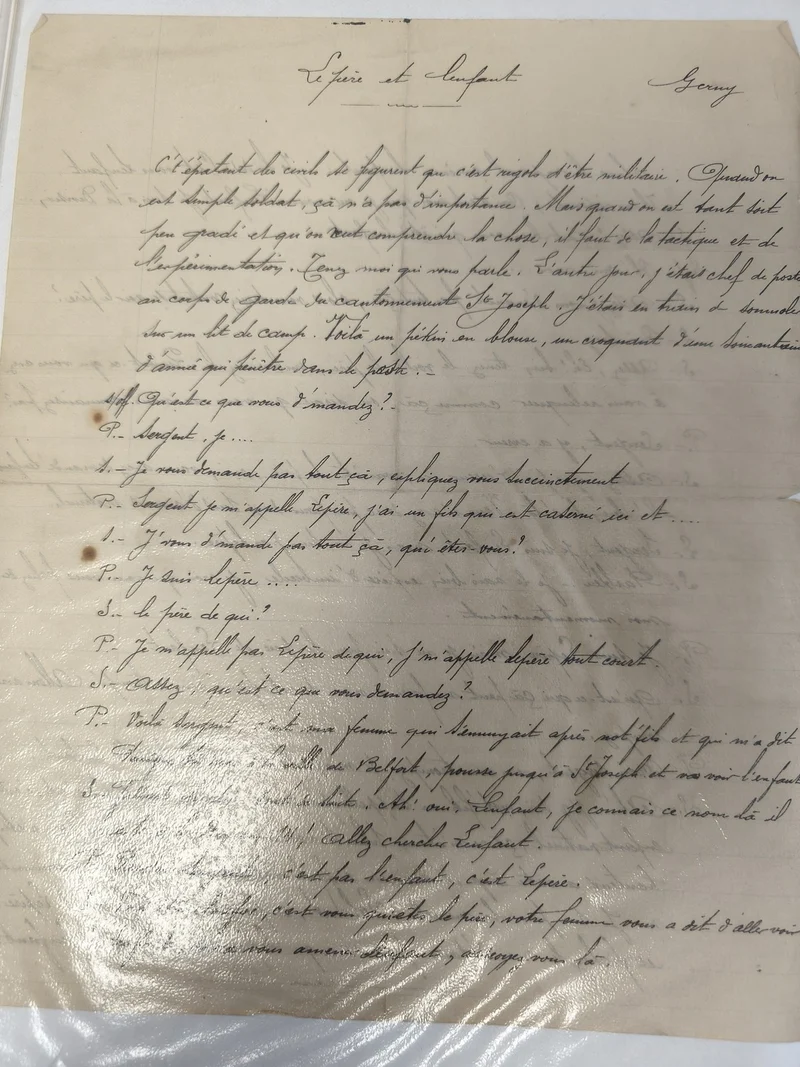 Lepère et Lenfant Gerny
C't'épatant des civils se figurent qu' c'est rigolo d'être militaire. Quand on
est simple soldat, çà n'a pas d'importance. Mais quand on est tant soit
peu gradé et qu'on veut comprendre la chose, il faut de la tactique et de
l'expérimentation. Tenez moi qui vous parle. L'autre jour, j'étais chef de poste
au corps de garde du cantonnement St Joseph. J'étais en train de somnoler
sur un lit de camp. Voilà un pékin en blouse, un croquant d'une soixantaine
d'année qui pénètre dans le poste. -
s/off. Qu'est ce que vous d'mandez ? -
P. - Sergent, je ....
S. - Je vous demande pas tout çà, expliquez vous succinctement
P. - Sergent je m'appelle Lepère, j'ai un fils qui est caserné ici et ....
S. - J'vous d'mande pas tout çà, qui êtes-vous ?
P. - Je suis lepère ....
S. - le père de qui ?
P. - Je m'appelle pas Lepère de qui, j'm'appelle lepère tout court.
S. - Assez, qu'est ce que vous demandez ?
P. - Voilà sergent, c'est ma femme qui s'ennuyait après not' fils et qui m'a dit
à la ville de Belfort, pousse jusqu'à St Joseph et va voir l'enfant
S. - de suite. Ah ! oui, Lenfant, je connais ce nom là il
! Allez chercher Lenfant.
c'est pas l'enfant, c'est Lepère.
c'est vous qui êtes le père, votre femme vous a dit d'aller voir
vous amener Lenfant, asseyez vous là.